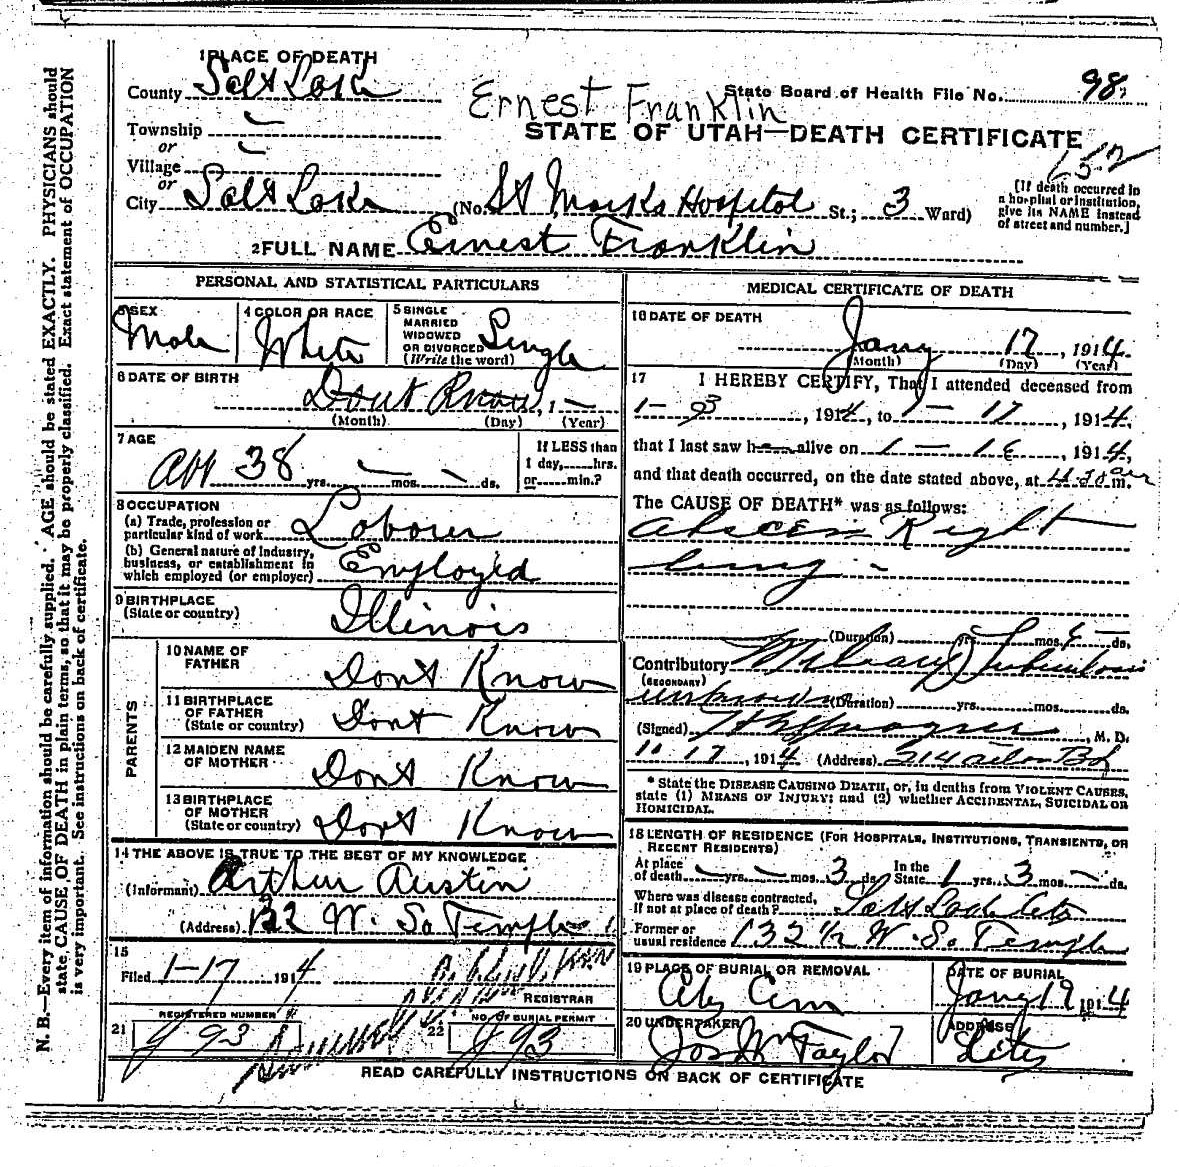 1 PLACE OF DEATH
County Salt Lake
Ernest Franklin
State Board of Health File No. 98
Township
or
Village
or
City Salt Lake
STATE OF UTAH—DEATH CERTIFICATE
(No. St Marks Hospital St.; 3 Ward)
[If death occurred in
a hospital or institution,
give its NAME instead
of street and number.]
2 FULL NAME Ernest Franklin
PERSONAL AND STATISTICAL PARTICULARS
3 SEX
Male
4 COLOR OR RACE
White
5 SINGLE
MARRIED
WIDOWED
OR DIVORCED
(Write the word)
Single
6 DATE OF BIRTH
Dont Know, 1
(Month) (Day) (Year)
7 AGE
Abt 38 yrs. mos. ds.
If LESS than
1 day, hrs.
or min.?
8 OCCUPATION
(a) Trade, profession or
particular kind of work Laborer
(b) General nature of Industry,
business, or establishment in
which employed (or employer) Employed
9 BIRTHPLACE
(State or country) Illinois
PARENTS
10 NAME OF
FATHER Dont Know
11 BIRTHPLACE
OF FATHER
(State or country) Dont Know
12 MAIDEN NAME
OF MOTHER Dont Know
13 BIRTHPLACE
OF MOTHER
(State or country) Dont Know
14 THE ABOVE IS TRUE TO THE BEST OF MY KNOWLEDGE
(Informant) Arthur Austin
(Address) 132 W. So Temple
15
Filed 1-17 1914
REGISTRAR
21 REGISTERED NUMBER
J 93
22 NO. OF BURIAL PERMIT
J 93
MEDICAL CERTIFICATE OF DEATH
16 DATE OF DEATH
Jany 17, 1914
(Month) (Day) (Year)
17 I HEREBY CERTIFY, That I attended deceased from
1 - , 1914, to 1 - 17, 1914,
that I last saw h alive on 1 - 16, 1914,
and that death occurred, on the date stated above, at 4.30 a m.
The CAUSE OF DEATH* was as follows:
Abscess Right
Lung
(Duration) yrs. mos. ds.
Contributory Miliary Tuberculosis
(SECONDARY)
unknown (Duration) yrs. mos. ds.
(Signed) , M. D.
1 17, 1914 (Address) 214
* State the DISEASE CAUSING DEATH, or, in deaths from VIOLENT CAUSES,
state (1) MEANS OF INJURY; and (2) whether ACCIDENTAL, SUICIDAL OR
HOMICIDAL.
18 LENGTH OF RESIDENCE (FOR HOSPITALS, INSTITUTIONS, TRANSIENTS, OR
RECENT RESIDENTS)
At place
of death yrs. mos. 3 ds. In the
State 1 yrs. 3 mos. ds.
Where was disease contracted,
if not at place of death? Salt Lake City
Former or
usual residence 132 1/2 W. So Temple
19 PLACE OF BURIAL OR REMOVAL
City Cem
DATE OF BURIAL
Jany 19 1914
20 UNDERTAKER
Jos Wm Taylor
ADDRESS
City
READ CAREFULLY INSTRUCTIONS ON BACK OF CERTIFICATE
N. B.—Every item of information should be carefully supplied. AGE should be stated EXACTLY. PHYSICIANS should
state CAUSE OF DEATH in plain terms, so that it may be properly classified. Exact statement of OCCUPATION
is very important. See instructions on back of certificate.